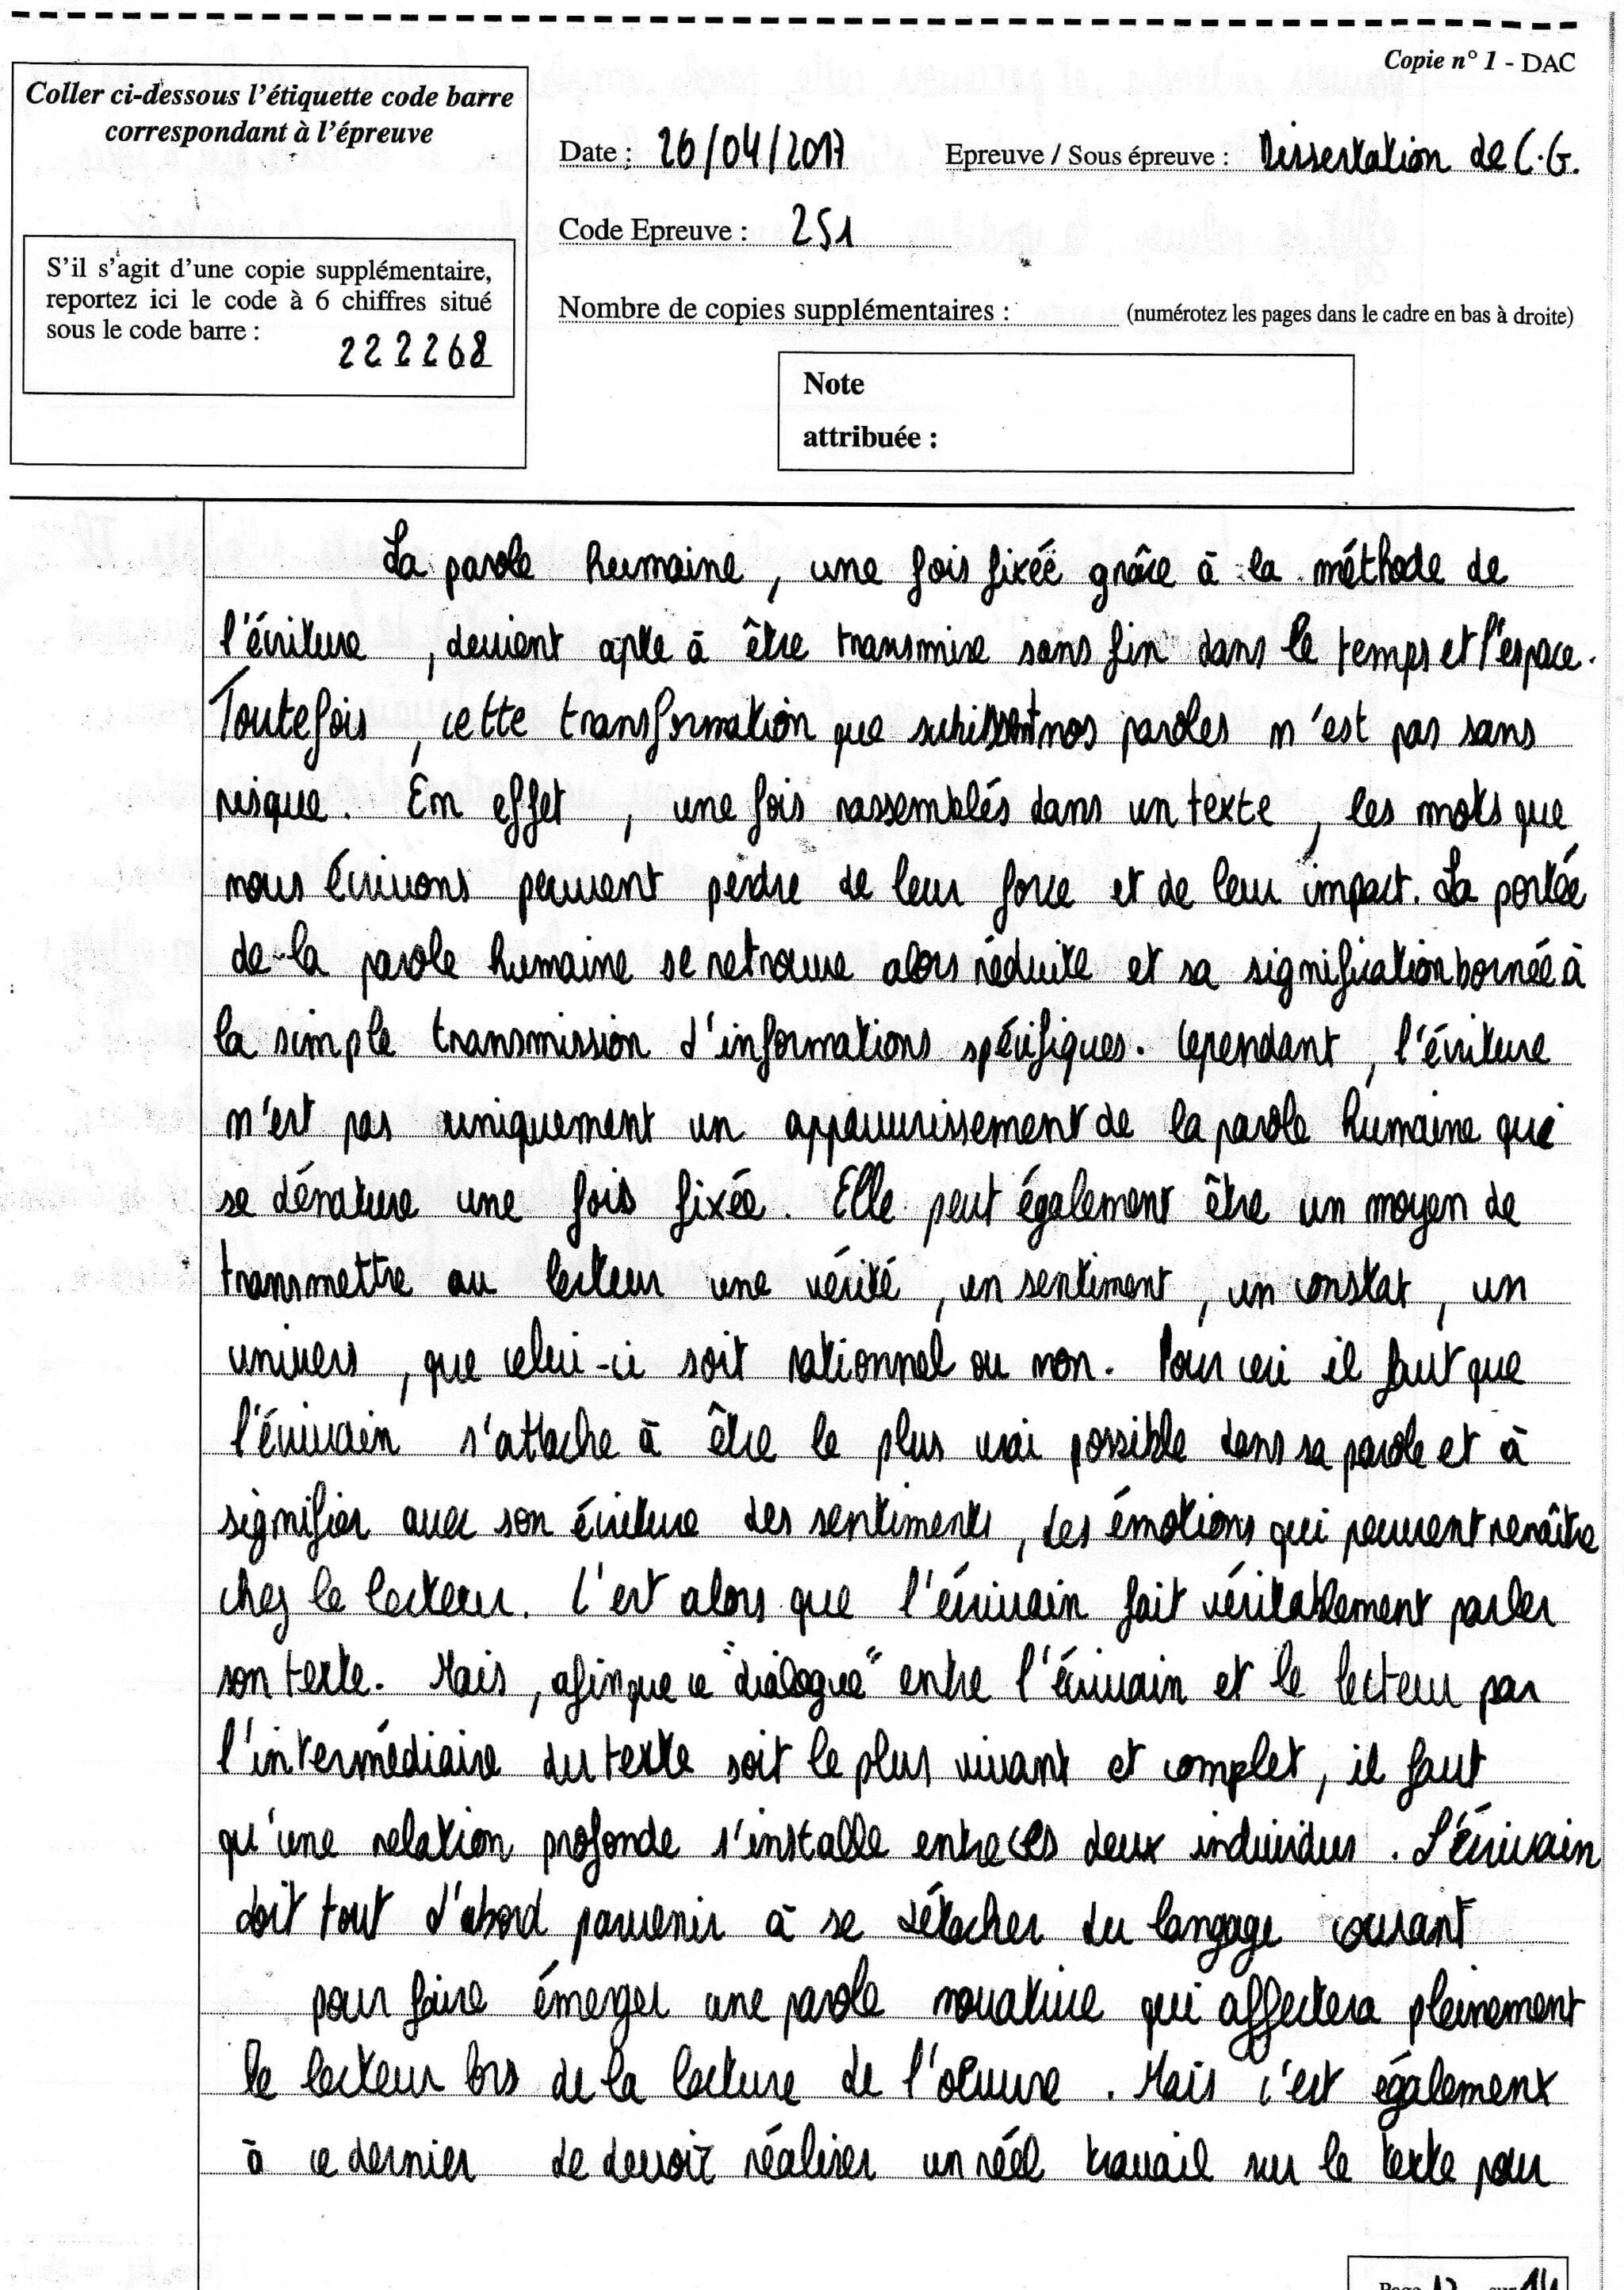 Copie n° 1 - DAC
Coller ci-dessous l'étiquette code barre
correspondant à l'épreuve
Date : 26/04/2017 Epreuve / Sous épreuve : Dissertation de C.G.
Code Epreuve : 251
S'il s'agit d'une copie supplémentaire,
reportez ici le code à 6 chiffres situé
sous le code barre :
222268
Nombre de copies supplémentaires : (numérotez les pages dans le cadre en bas à droite)
Note
attribuée :
La parole humaine, une fois fixée grâce à la méthode de
l'écriture, devient apte à être transmise sans fin dans le temps et l'espace.
Toutefois, cette transformation que subissent nos paroles n'est pas sans
risque. En effet, une fois rassemblés dans un texte, les mots que
nous écrivons peuvent perdre de leur force et de leur impact. La portée
de la parole humaine se retrouve alors réduite et sa signification bornée à
la simple transmission d'informations spécifiques. Cependant, l'écriture
n'est pas uniquement un appauvrissement de la parole humaine qui
se dénature une fois fixée. Elle peut également être un moyen de
transmettre au lecteur une vérité, un sentiment, un constat, un
univers, que celui-ci soit rationnel ou non. Pour ceci il faut que
l'écrivain s'attache à être le plus vrai possible dans sa parole et à
signifier avec son écriture des sentiments, des émotions qui peuvent renaître
chez le lecteur. C'est alors que l'écrivain fait véritablement parler
son texte. Mais, afin que ce "dialogue" entre l'écrivain et le lecteur par
l'intermédiaire du texte soit le plus vivant et complet, il faut
qu'une relation profonde s'installe entre ces deux individus. L'écrivain
doit tout d'abord parvenir à se détacher du langage courant
pour faire émerger une parole novatrice qui affectera pleinement
le lecteur lors de la lecture de l'oeuvre. Mais c'est également
à ce dernier de devoir réaliser un réel travail sur le texte pour
Page sur 14